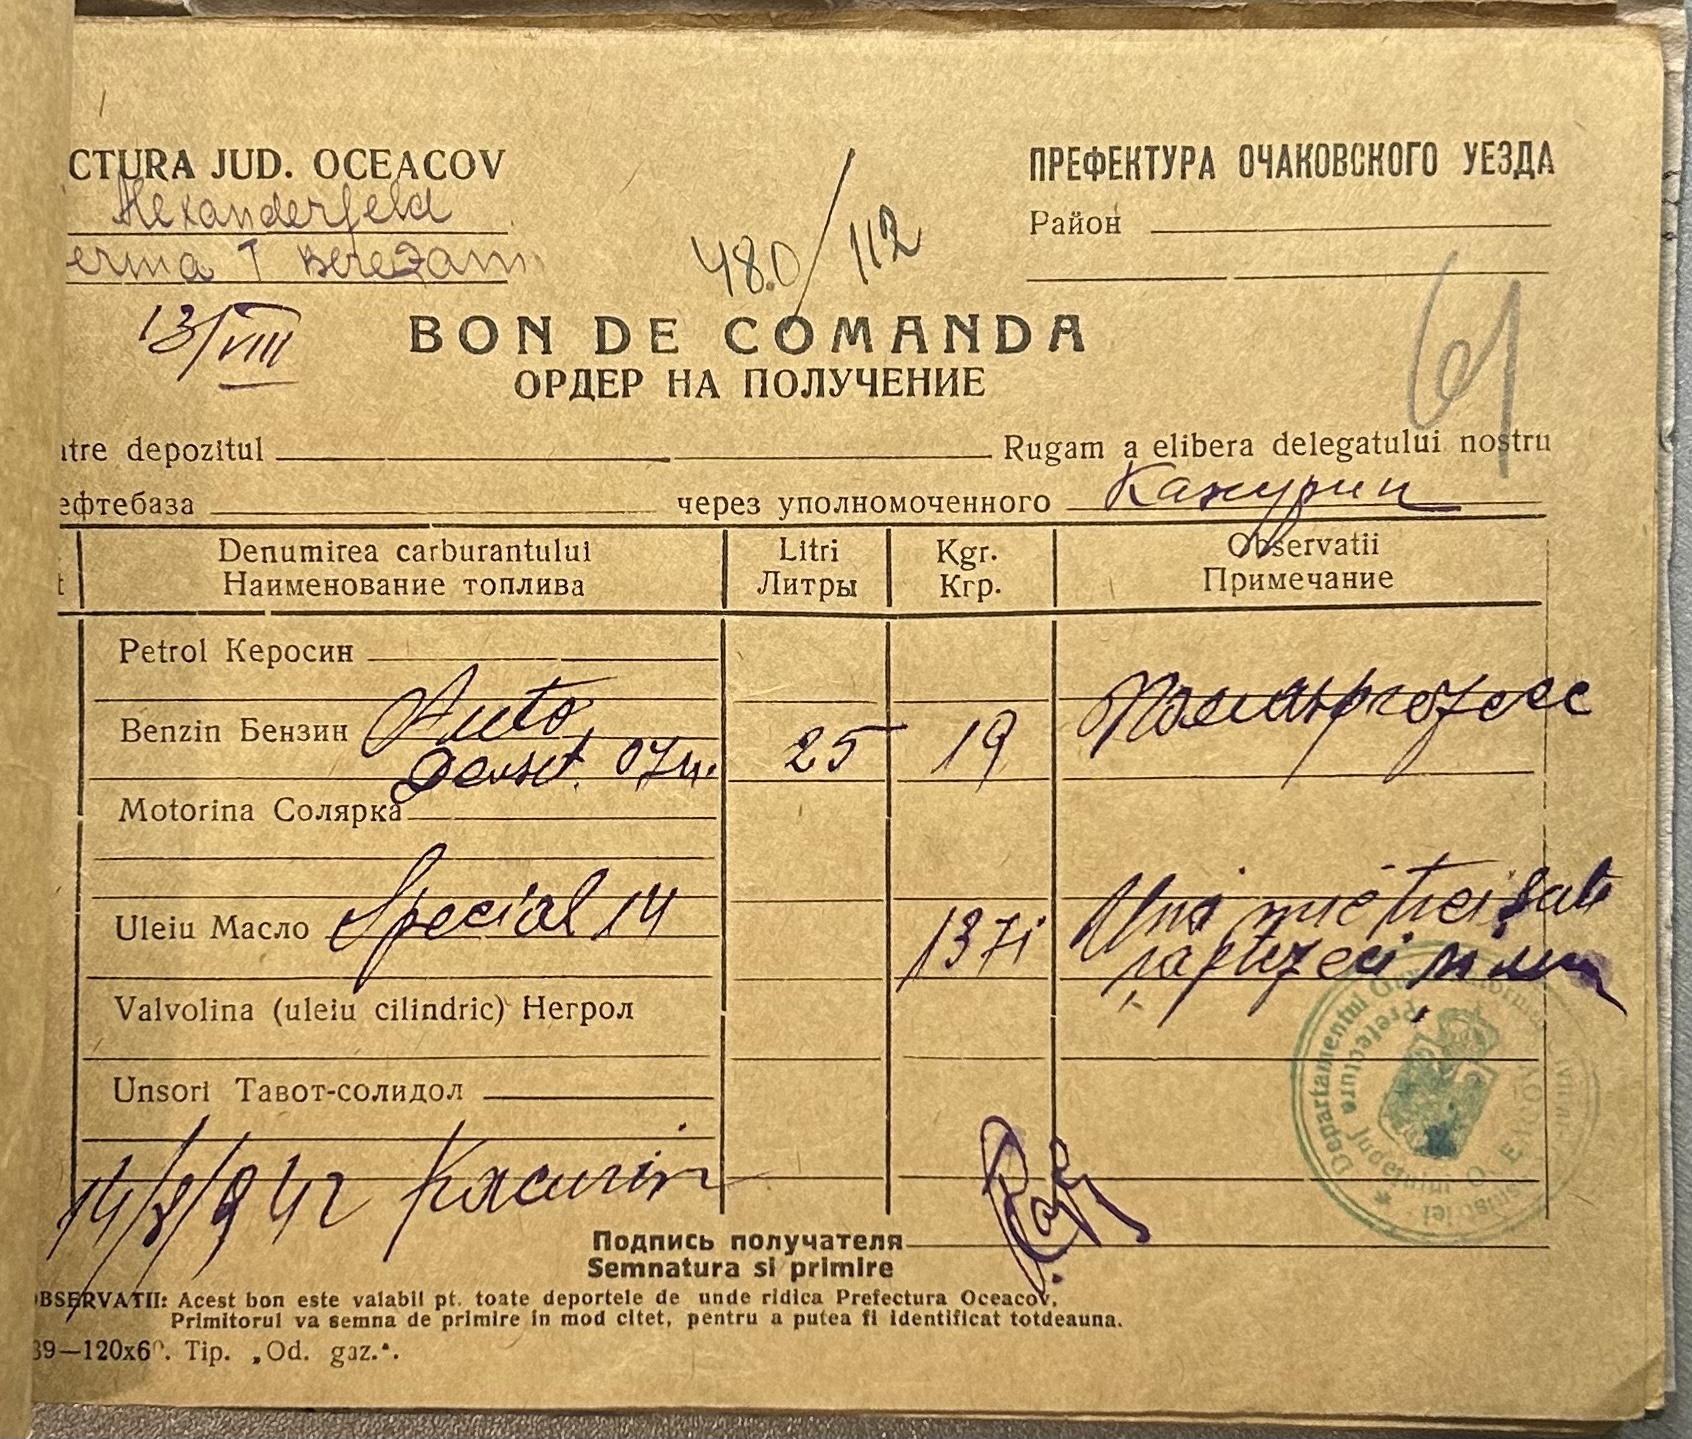 CTURA JUD. OCEACOV
ПРЕФЕКТУРА ОЧАКОВСКОГО УЕЗДА
Alexanderfeld
Район
erma T Berezani
480/112
13/VIII
BON DE COMANDA
61
ОРДЕР НА ПОЛУЧЕНИЕ
tre depozitul Rugam a elibera delegatului nostru
ефтебаза через уполномоченного Кажурин
Denumirea carburantului Litri Kgr. Observatii
t Наименование топлива Литры Кгр. Примечание
Petrol Керосин
Benzin Бензин Auto 25 19
Denset. 074.
Motorina Солярка
Uleiu Масло Special 14 1371 Una mie trei sute
șaptezeci și una
Valvolina (uleiu cilindric) Негрол
Unsori Тавот-солидол
14/8/942 Kacurin
Подпись получателя
Semnatura si primire
OBSERVATII: Acest bon este valabil pt. toate deportele de unde ridica Prefectura Oceacov.
Primitorul va semna de primire in mod citet, pentru a putea fi identificat totdeauna.
39—120x60. Tip. „Od. gaz.".
Departamentul
Prefecture Judetului